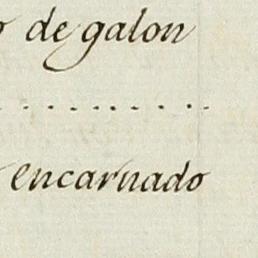 de galon
encarnado